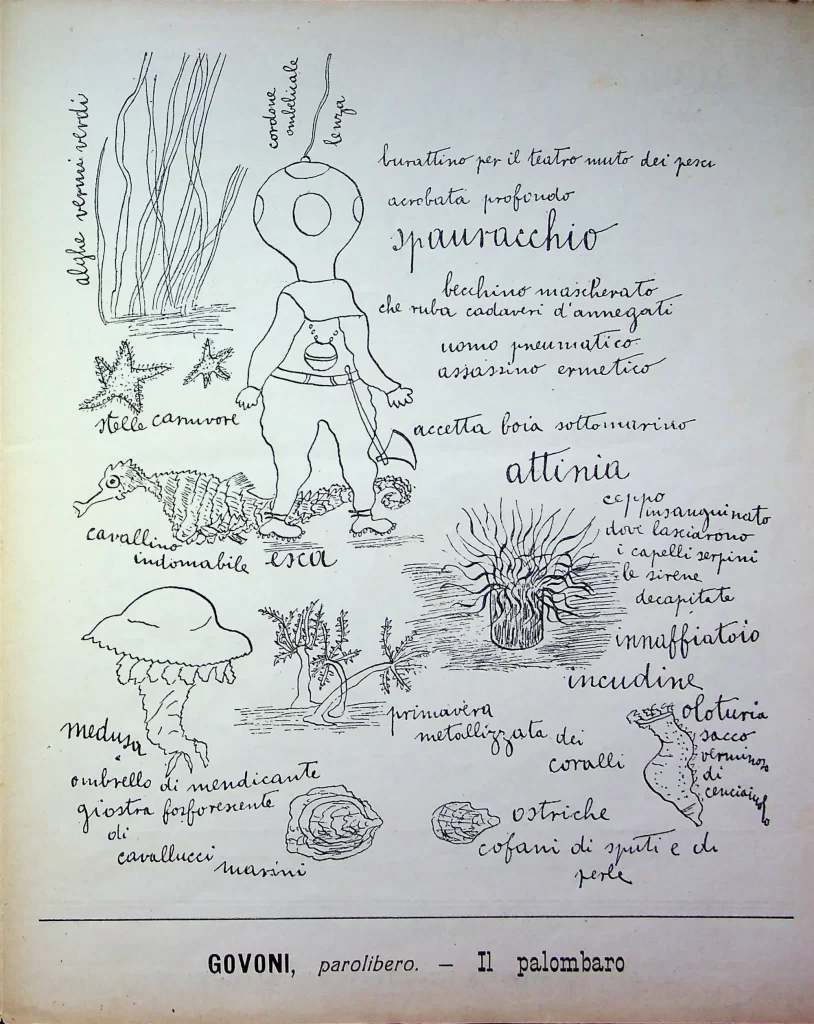 alghe vermi verdi
cordone
ombelicale
lenza
burattino per il teatro muto dei pesci
acrobata profondo
spauracchio
becchino mascherato
che ruba cadaveri d'annegati
uomo pneumatico
assassino ermetico
stelle carnivore
accetta boia sottomarino
attinia
ceppo
insanguinato
dove lasciarono
i capelli serpini
le sirene
decapitate
cavallino
indomabile
esca
innaffiatoio
incudine
primavera
metallizzata dei
coralli
oloturia
sacco
verminoso
di
cenciaiuolo
medusa
ombrello di mendicante
giostra forforescente
di
cavallucci
marini
ostriche
cofani di sputi e di
perle
GOVONI, parolibero. — Il palombaro